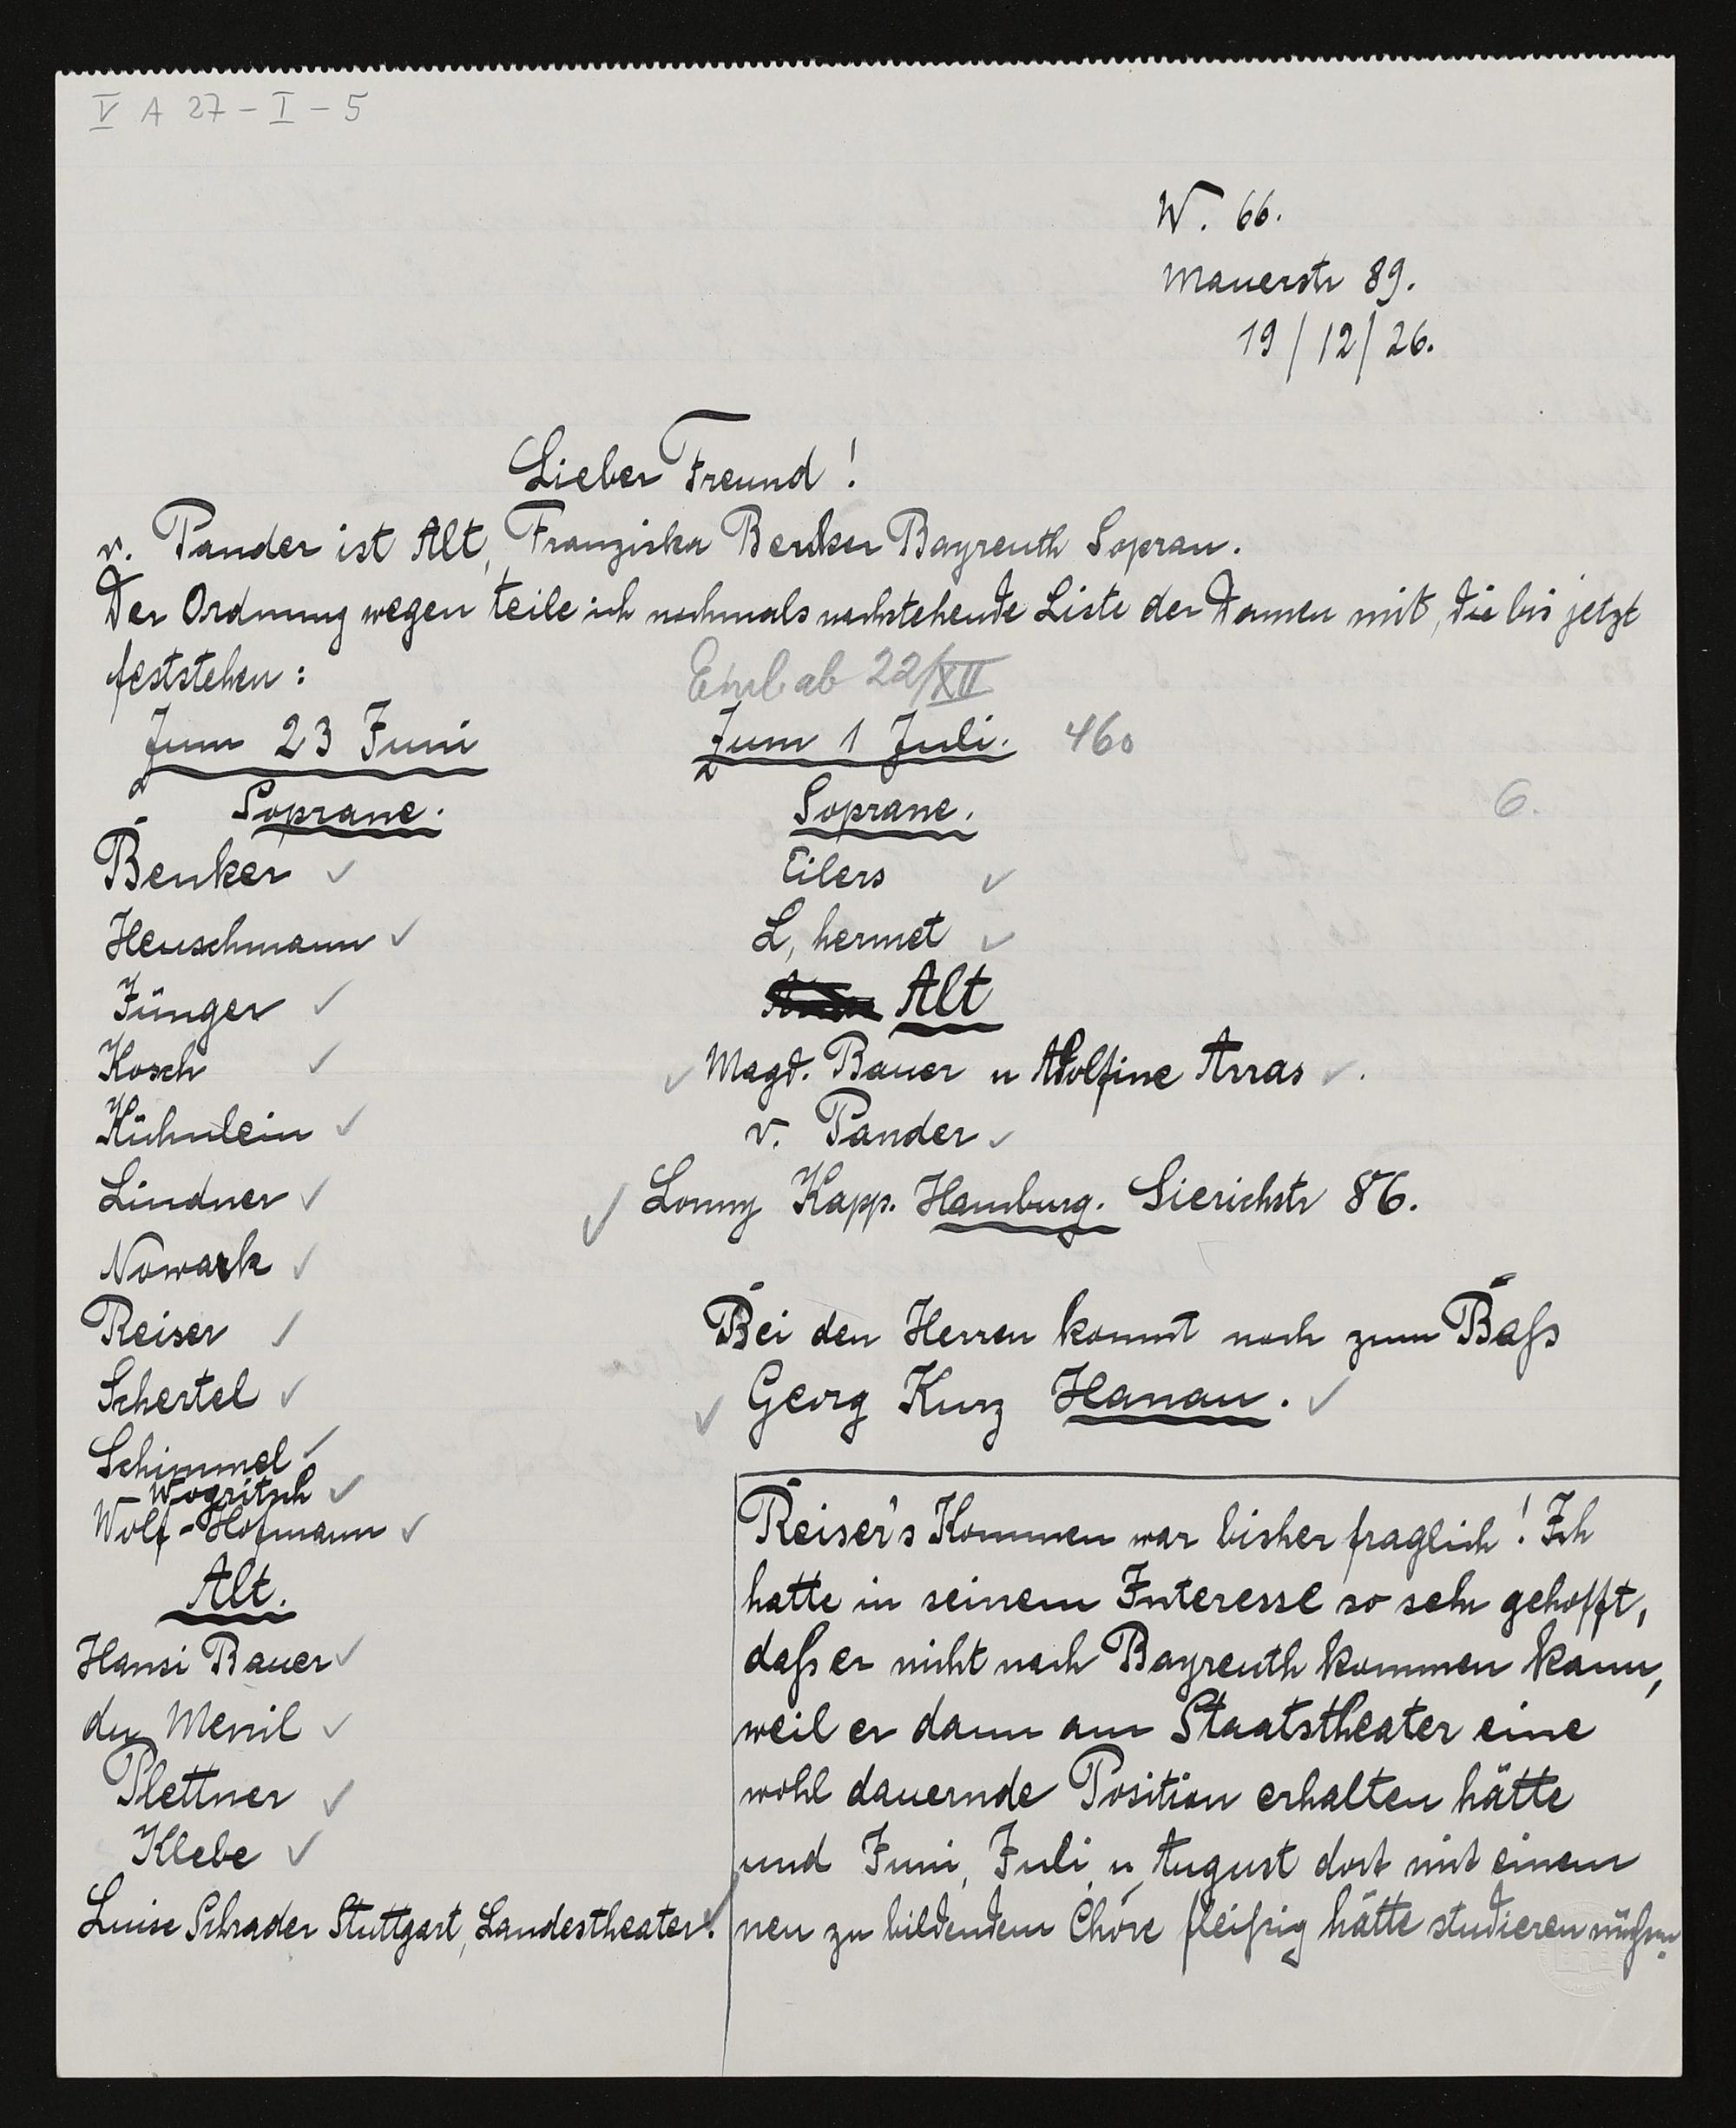 V A 27 - I - 5
W. 66.
Mauerstr 89.
19/12/26.
Lieber Freund!
v. Pander ist Alt, Franziska Benker Bayreuth Sopran.
Der Ordnung wegen teile ich nochmals nachstehende Liste der Damen mit, die bis jetzt
feststehen:
ab 22/XII
Zum 23 Juni
Soprane.
Benker ✓
Henschmann ✓
Jünger ✓
Kosch ✓
Kühnlein ✓
Lindner ✓
Nowack ✓
Reiser ✓
Schertel ✓
Schimmel ✓
Wogritsch ✓
Wolf-Hofmann ✓
Alt.
Hansi Bauer ✓
du Menil ✓
Plettner ✓
Klebe ✓
Luise Schrader Stuttgart, Landestheater. ✓
Zum 1 Juli. 460
6.
Soprane.
Eilers ✓
L, hermet ✓
Alt
✓ Magd. Bauer u Adolfine Arras ✓.
v. Pander ✓
✓ Lonny Kapp. Hamburg. Sierichstr 86.
Bei den Herren kommt noch zum Baß
✓ Georg Kunz Hanau. ✓
Reiser's Kommen war bisher fraglich! Ich
hatte in seinem Interesse so sehr gehofft,
daß er nicht nach Bayreuth kommen kann,
weil er dann am Staatstheater eine
wohl dauernde Position erhalten hätte
und Juni, Juli u, August dort mit einem
neu zu bildendem Chore fleißig hätte studieren müßen.